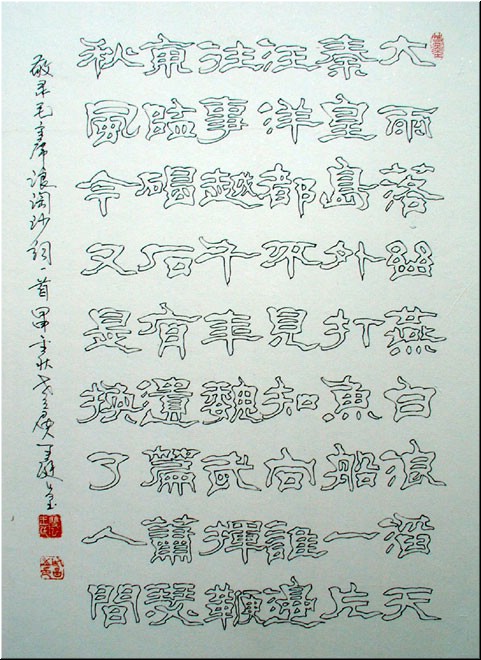 大雨落幽燕白浪滔天
秦皇島外打魚船一片
汪洋都不見知向誰邊
往事越千年魏武揮鞭
東臨碣石有遺篇蕭瑟
秋風今又是換了人間
敬录毛主席浪淘沙詞一首甲申秋